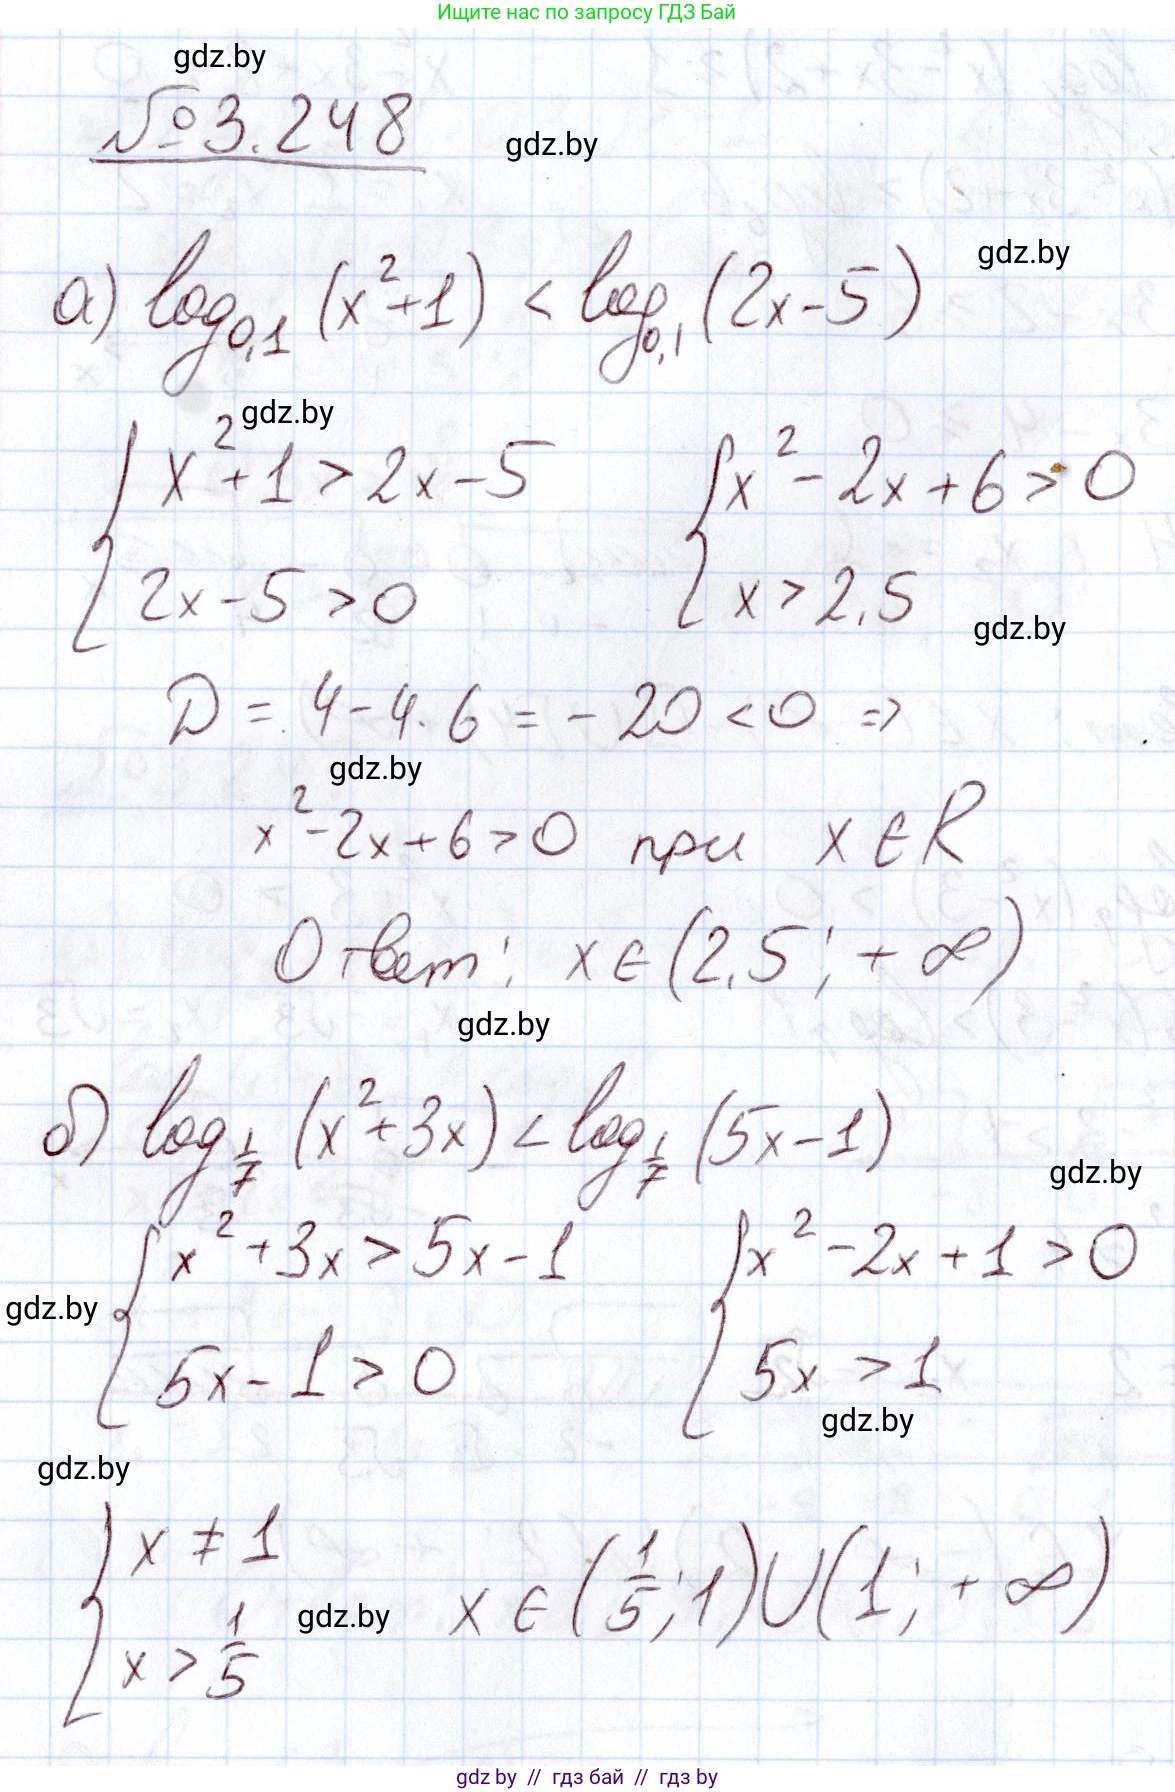 Ищите нас по запросу ГДЗ Бай
gdz.by
№ 3.248
gdz.by
gdz.by
а) log₀,₁ (x² + 1) < log₀,₁ (2x − 5)
gdz.by
{ x² + 1 > 2x − 5   { x² − 2x + 6 > 0
2x − 5 > 0   x > 2,5
gdz.by
D = 4 − 4 · 6 = − 20 < 0 =>
gdz.by
x² − 2x + 6 > 0 при x ∈ R
Ответ: x ∈ (2,5; + ∞)
gdz.by
б) log_{1/7} (x² + 3x) < log_{1/7} (5x − 1)
gdz.by
{ x² + 3x > 5x − 1   { x² − 2x + 1 > 0
gdz.by
5x − 1 > 0   5x > 1
gdz.by
gdz.by
{ x ≠ 1
x > 1/5   x ∈ (1/5; 1) ∪ (1; + ∞)
gdz.by
gdz by // гдз бай // гдз by